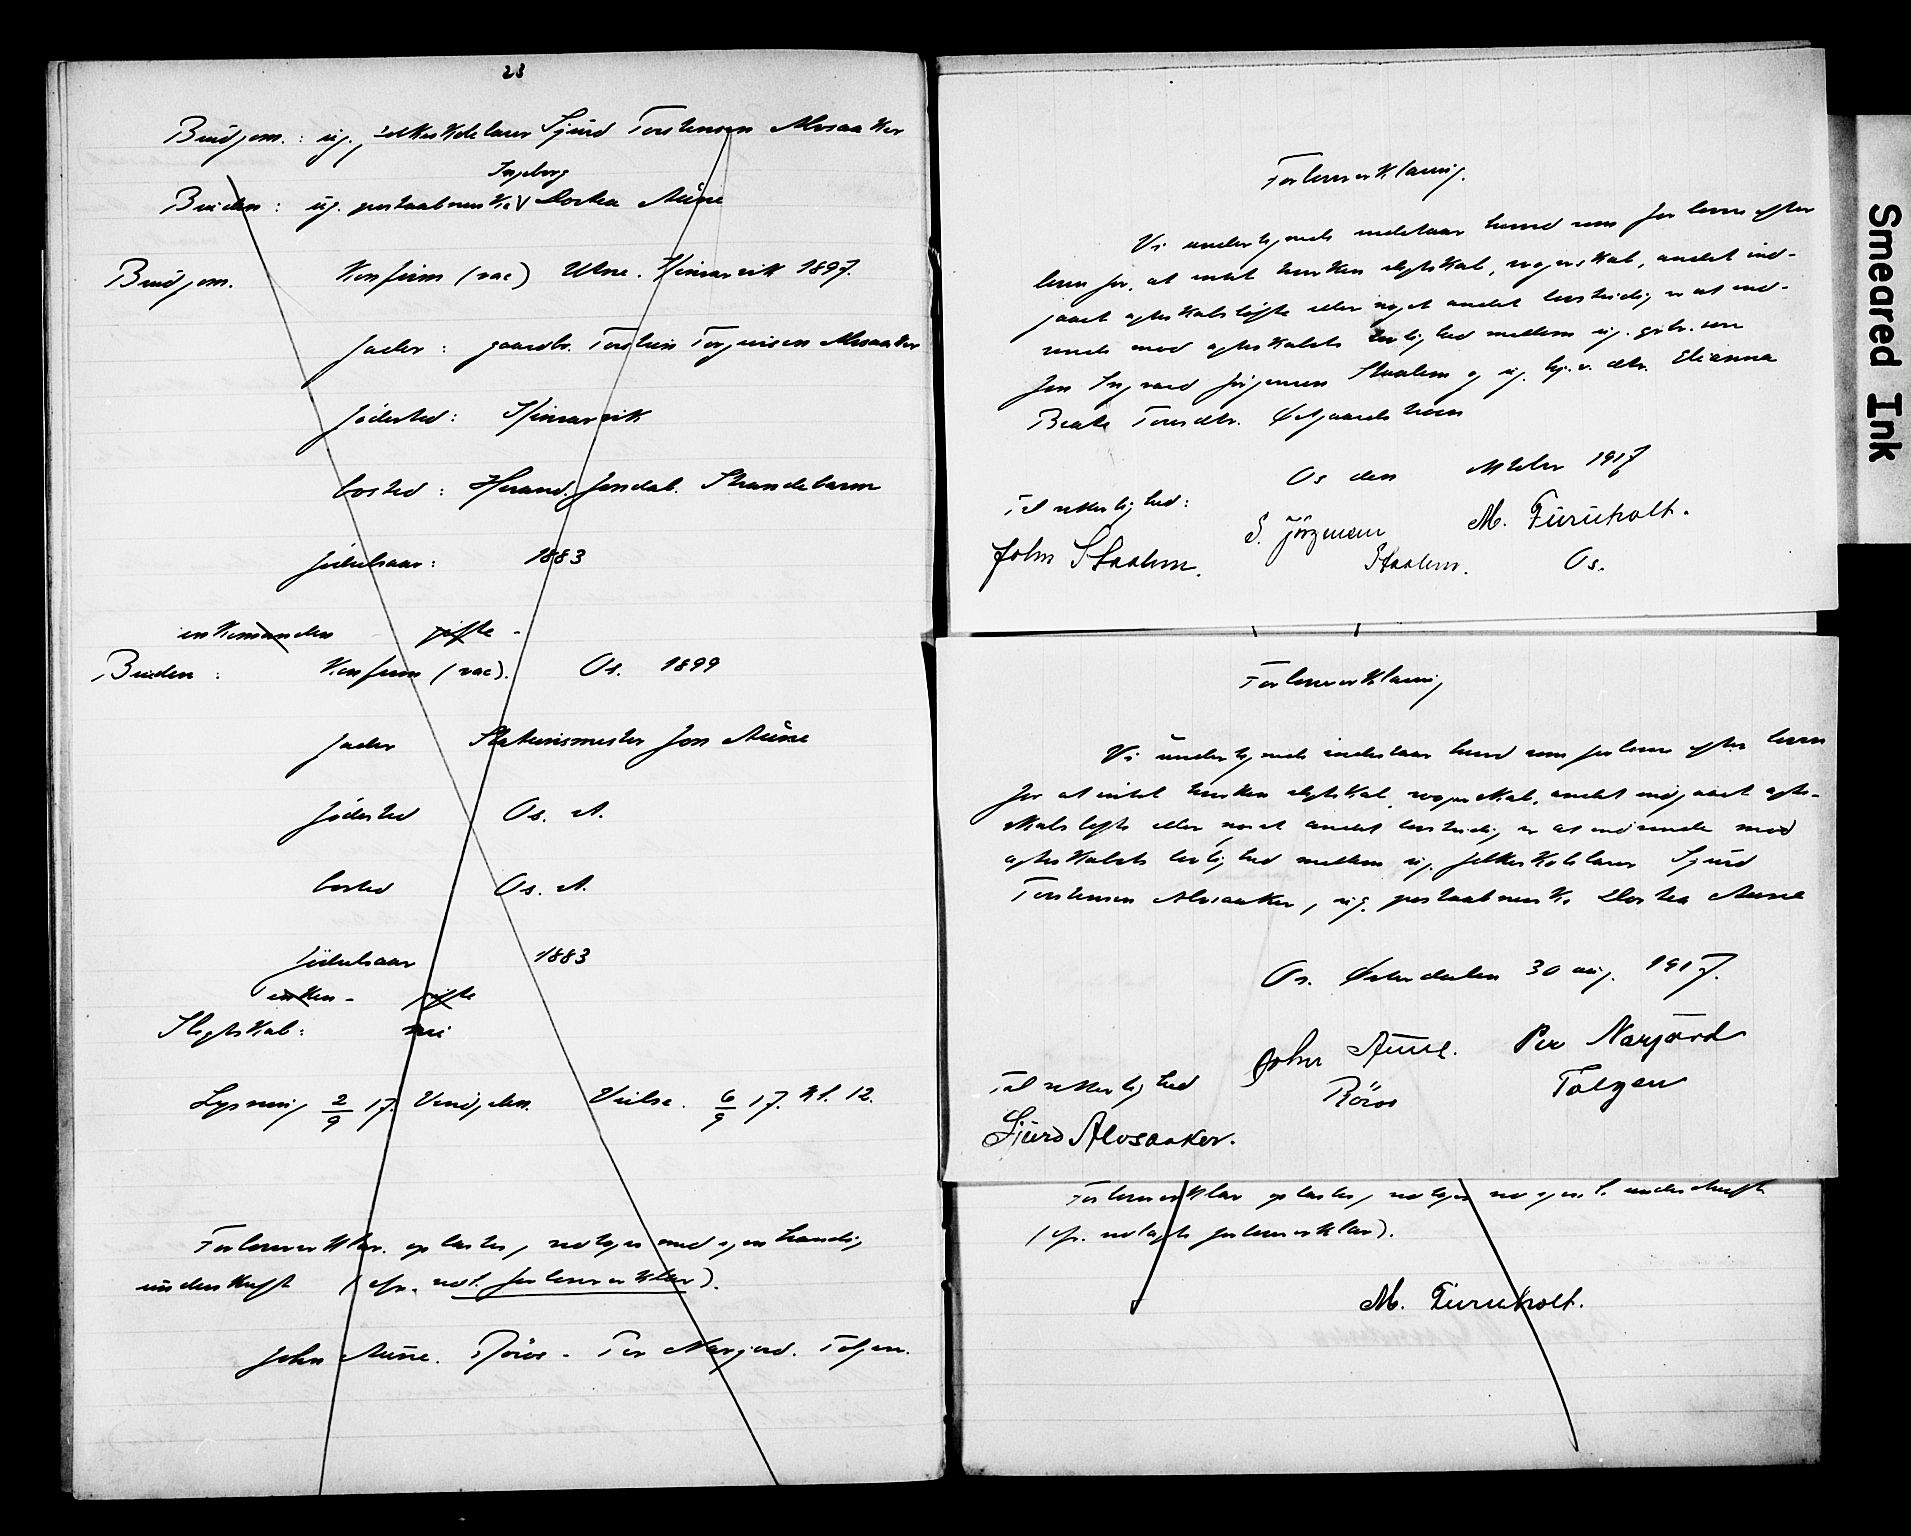 23
Brudgom. : ug. folkeskolelærer Sjurd Torstensen Alvsaaker
Ingeborg
Bruden : ug. postaabnerske V Dortea Aune
Brudgom. Konfirm (vac) Utne. Kinsarvik 1897.
fader : gaardbr. Torstein Torgeirsen Alvsaaker
fødested : Kinsarvik
bosted : Herand. Jondal. Strandebarm
fødselsaar : 1883
enkemanden gifte -
Bruden : Konfirm (vac). Os. 1899
fader Stationsmester Jon Aune
fødested Os. st.
bosted Os. st.
fødselsaar 1883
enken - gifte
Slegtskab: nei
Lysning 2/9 17. Vielse. 6/9 17. kl. 12.
Forloverklær. oplæstes, vedtages med egenhændig
underskrift (cfr. vedl. forloverklær).
John Aune. Röros - Per Narjord. Tolgen.
Forlovererklæring.
Vi undertegnede indestaar herved som forlovere efter
loven for, at intet hverken slegtskab, svogerskab, andet ind-
gaaet egteskabsløfte eller noget andet lovstridig er at ind-
vende mod egteskabets lovlighed mellem ug. gbr. søn
Jon Ingvard Jörgensen Staalem og ug. dtr. Elianna
Beate Tomsdtr. Østgaardstrøen
Os den oktober 1917
Til vitterlighed:
S. Jörgensen M. Furuholt.
John Staalem. Staalem. Os.
Forlovererklæring
Vi undertegnede indestaar herved som forlovere efter loven
for at intet hverken slegtskab, svogerskab, andet indgaaet egte-
skabsløfte eller noget andet lovstridig er at indvende mod
egteskabets lovlighed mellem ug. folkeskolelærer Sjurd
Torstensen Alvsaaker, ug. postaabnerske Dortea Aune
Os. Østerdalen 30 aug. 1917.
John Aune. Per Narjord
Til vitterlighed Röros Tolgen
Sjurd Alvsaaker.
Forloverklær oplæstes, vedtages underskrift
(cfr. vedlagte forloverklær).
M. Furuholt.
Smeared Ink